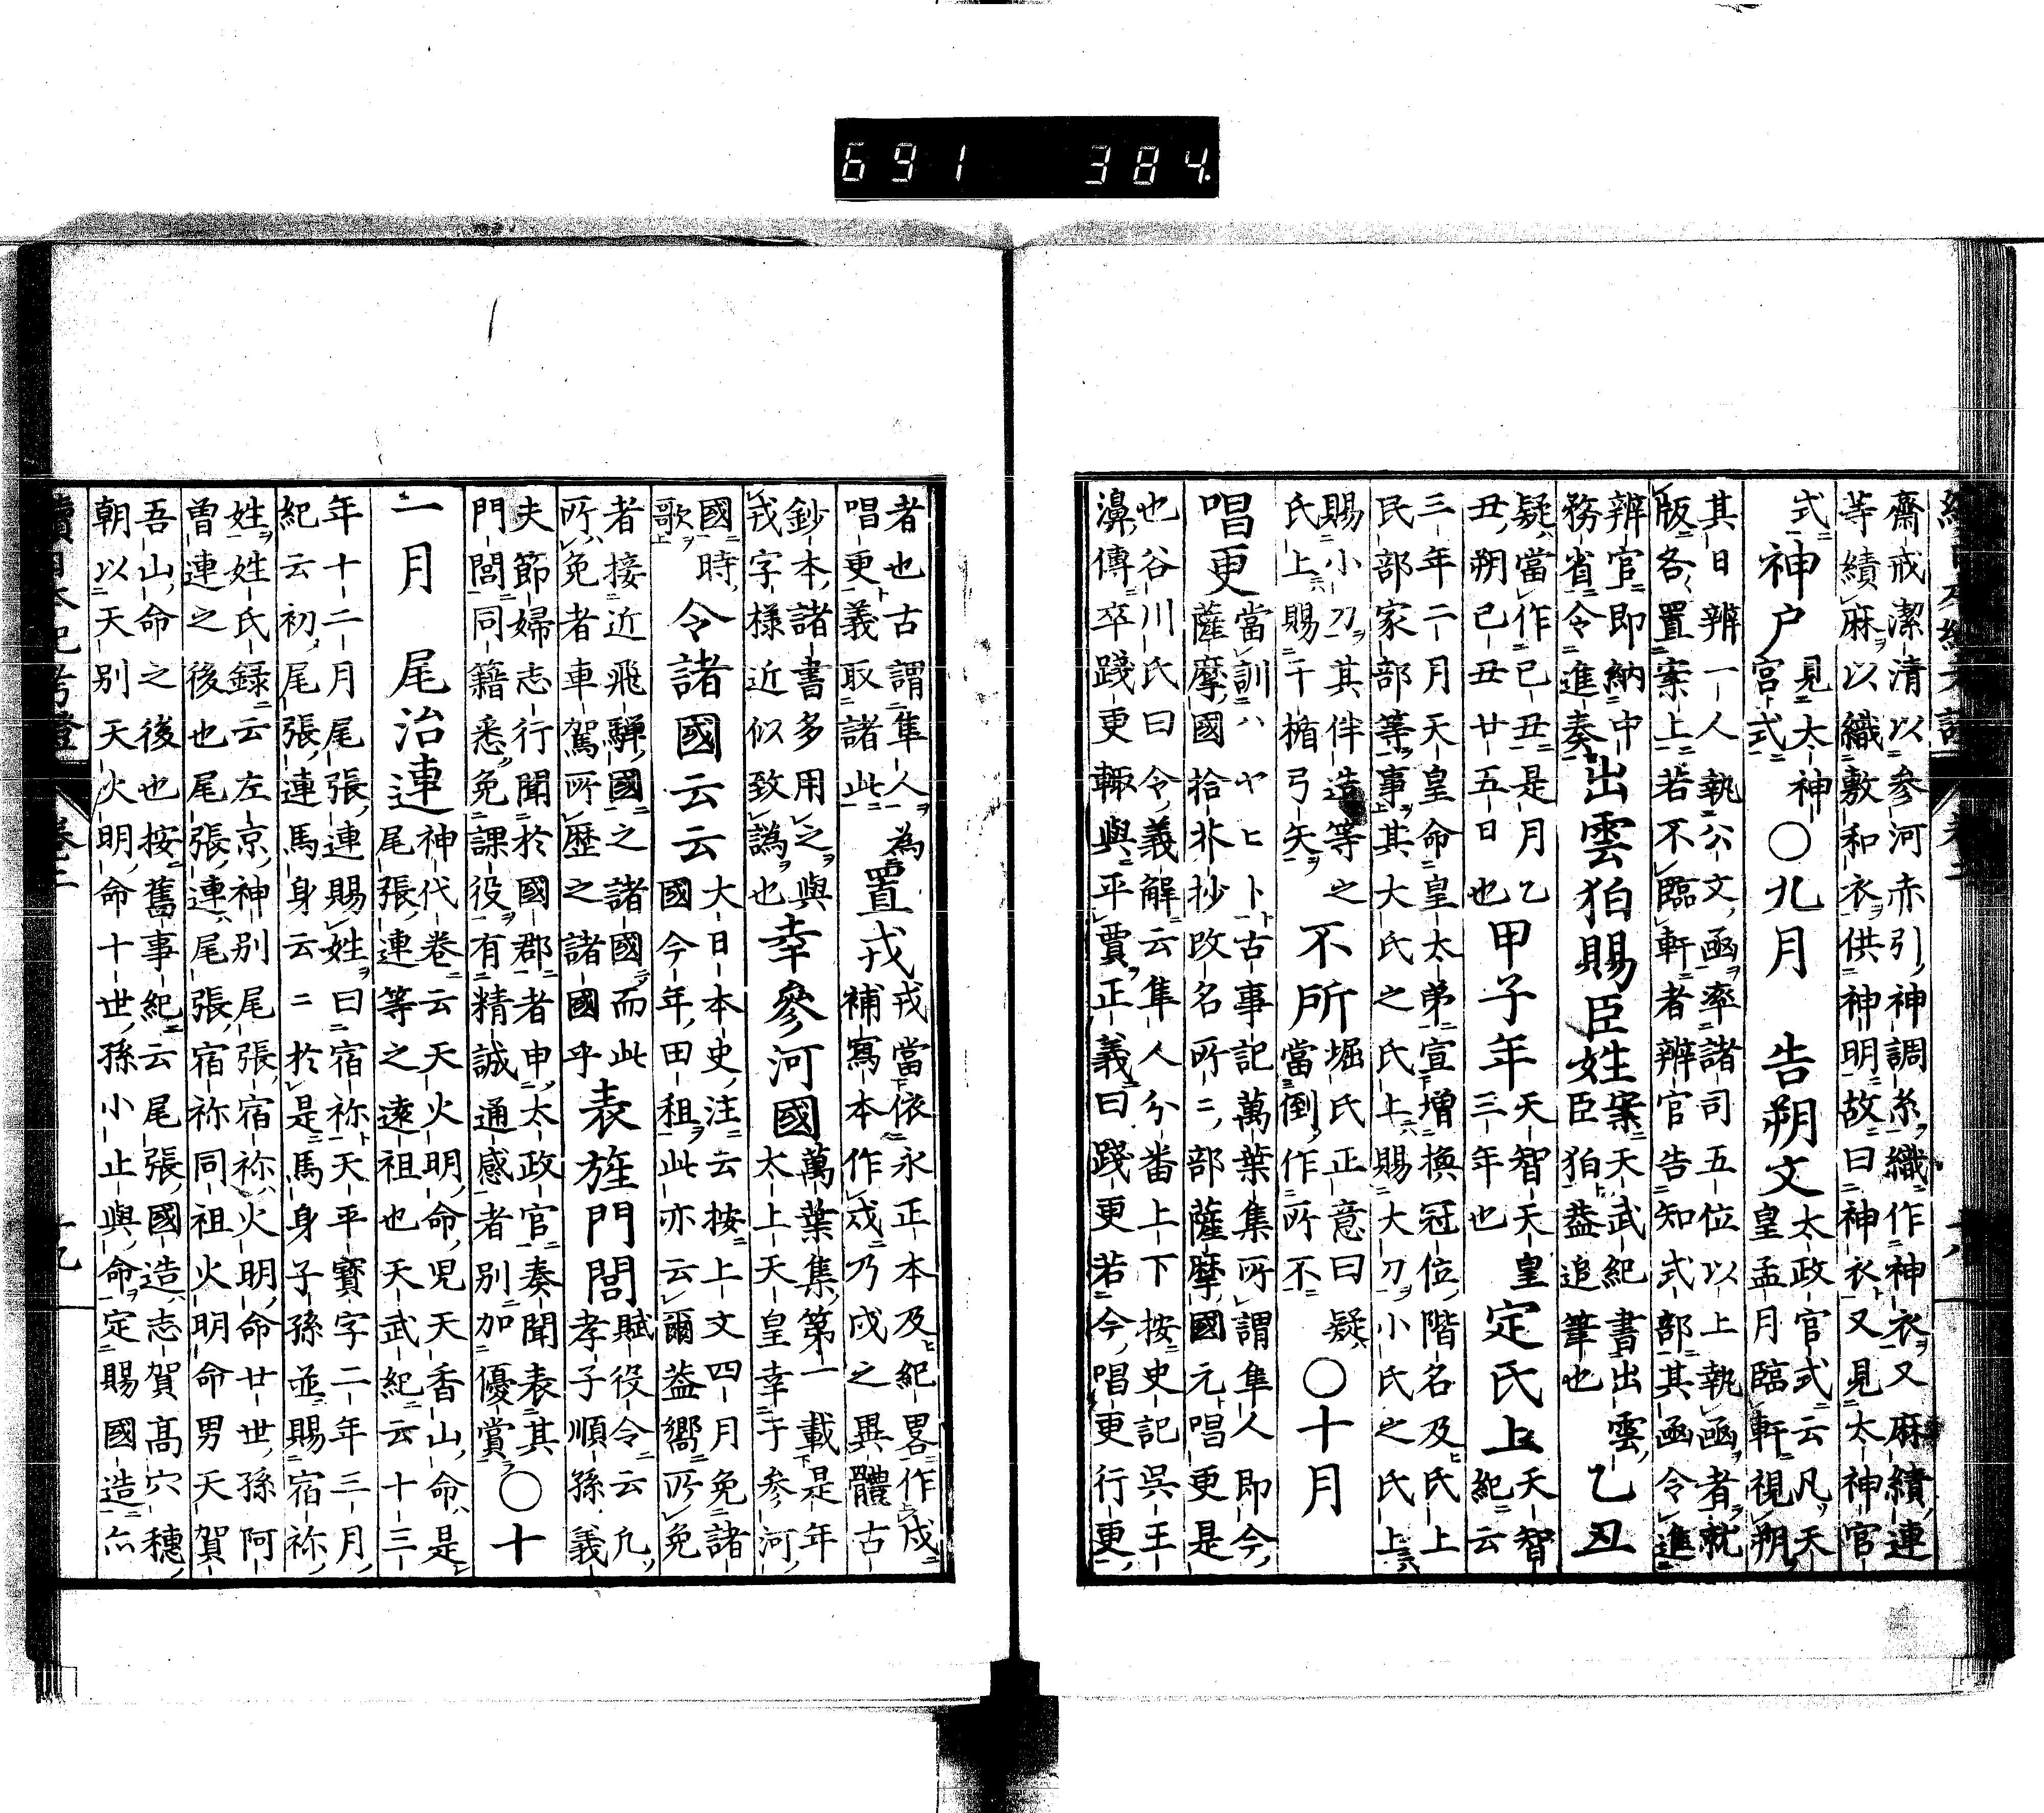 691 384.
齋戒潔清以參河赤引神調糸織作神衣又麻績連
等績麻以織敷和衣供神明故曰神衣又見太神官
式神戸見大神宮式○九月 告朔文太政官式云凡天皇孟月臨軒視朔
其日辨一人執公文函率諸司五位以上執函者就
版各置案上若不臨軒者辨官告知式部其函令進
辨官即納中務省令進奏出雲狛賜臣姓案天武紀書出雲臣狛葢追筆也乙丑
疑當作己丑是月乙丑朔己丑廿五日也甲子年天智天皇三年也定氏上天智紀云
三年二月天皇命皇太弟宣增換冠位階名及氏上
民部家部等事其大氏之氏上賜大刀小氏之氏上
賜小刀其伴造等之氏上賜干楯弓矢不所堀氏正意曰當倒作所不疑○十月
唱更當訓ハヤヒト古事記萬葉集所謂隼人即今薩摩國拾芥抄改名所二部薩摩國元唱更是
也谷川氏曰令義解云隼人分番上下按史記呉王
濞傳卒踐更輙與平賈正義曰踐更若今唱更行更
者也古謂隼人為唱更義取諸此置戎戎當依永正本及紀畧作戍補寫本作戍乃戍之異體古
鈔本諸書多用之與戎字樣近似致譌也幸參河國萬葉集第一載是年太上天皇幸于参河
國時歌令諸國云云大日本史注云按上文四月免諸國今年田租此亦云爾葢嚮所免
者接近飛騨國之諸國而此所免者車駕所歴之諸國乎表旌門閭賦役令云凡孝子順孫義
夫節婦志行聞於國郡者申太政官奏聞表其門閭同籍悉免課役有精誠通感者別加優賞○十
一月 尾治連神代卷云天火明命児天香山命是尾張連等之遠祖也天武紀云十三
年十二月尾張連賜姓曰宿祢天平寳字二年三月
紀云初尾張連馬身云二於是馬身子孫並賜宿祢
姓姓氏録云左京神別尾張宿祢火明命廿世孫阿
曽連之後也尾張連尾張宿祢同祖火明命男天賀
吾山命之後也按舊事紀云尾張國造志賀高穴穗
朝以天別天火明命十世孫小止與命定賜國造六
續日本紀考證
卷二
十九